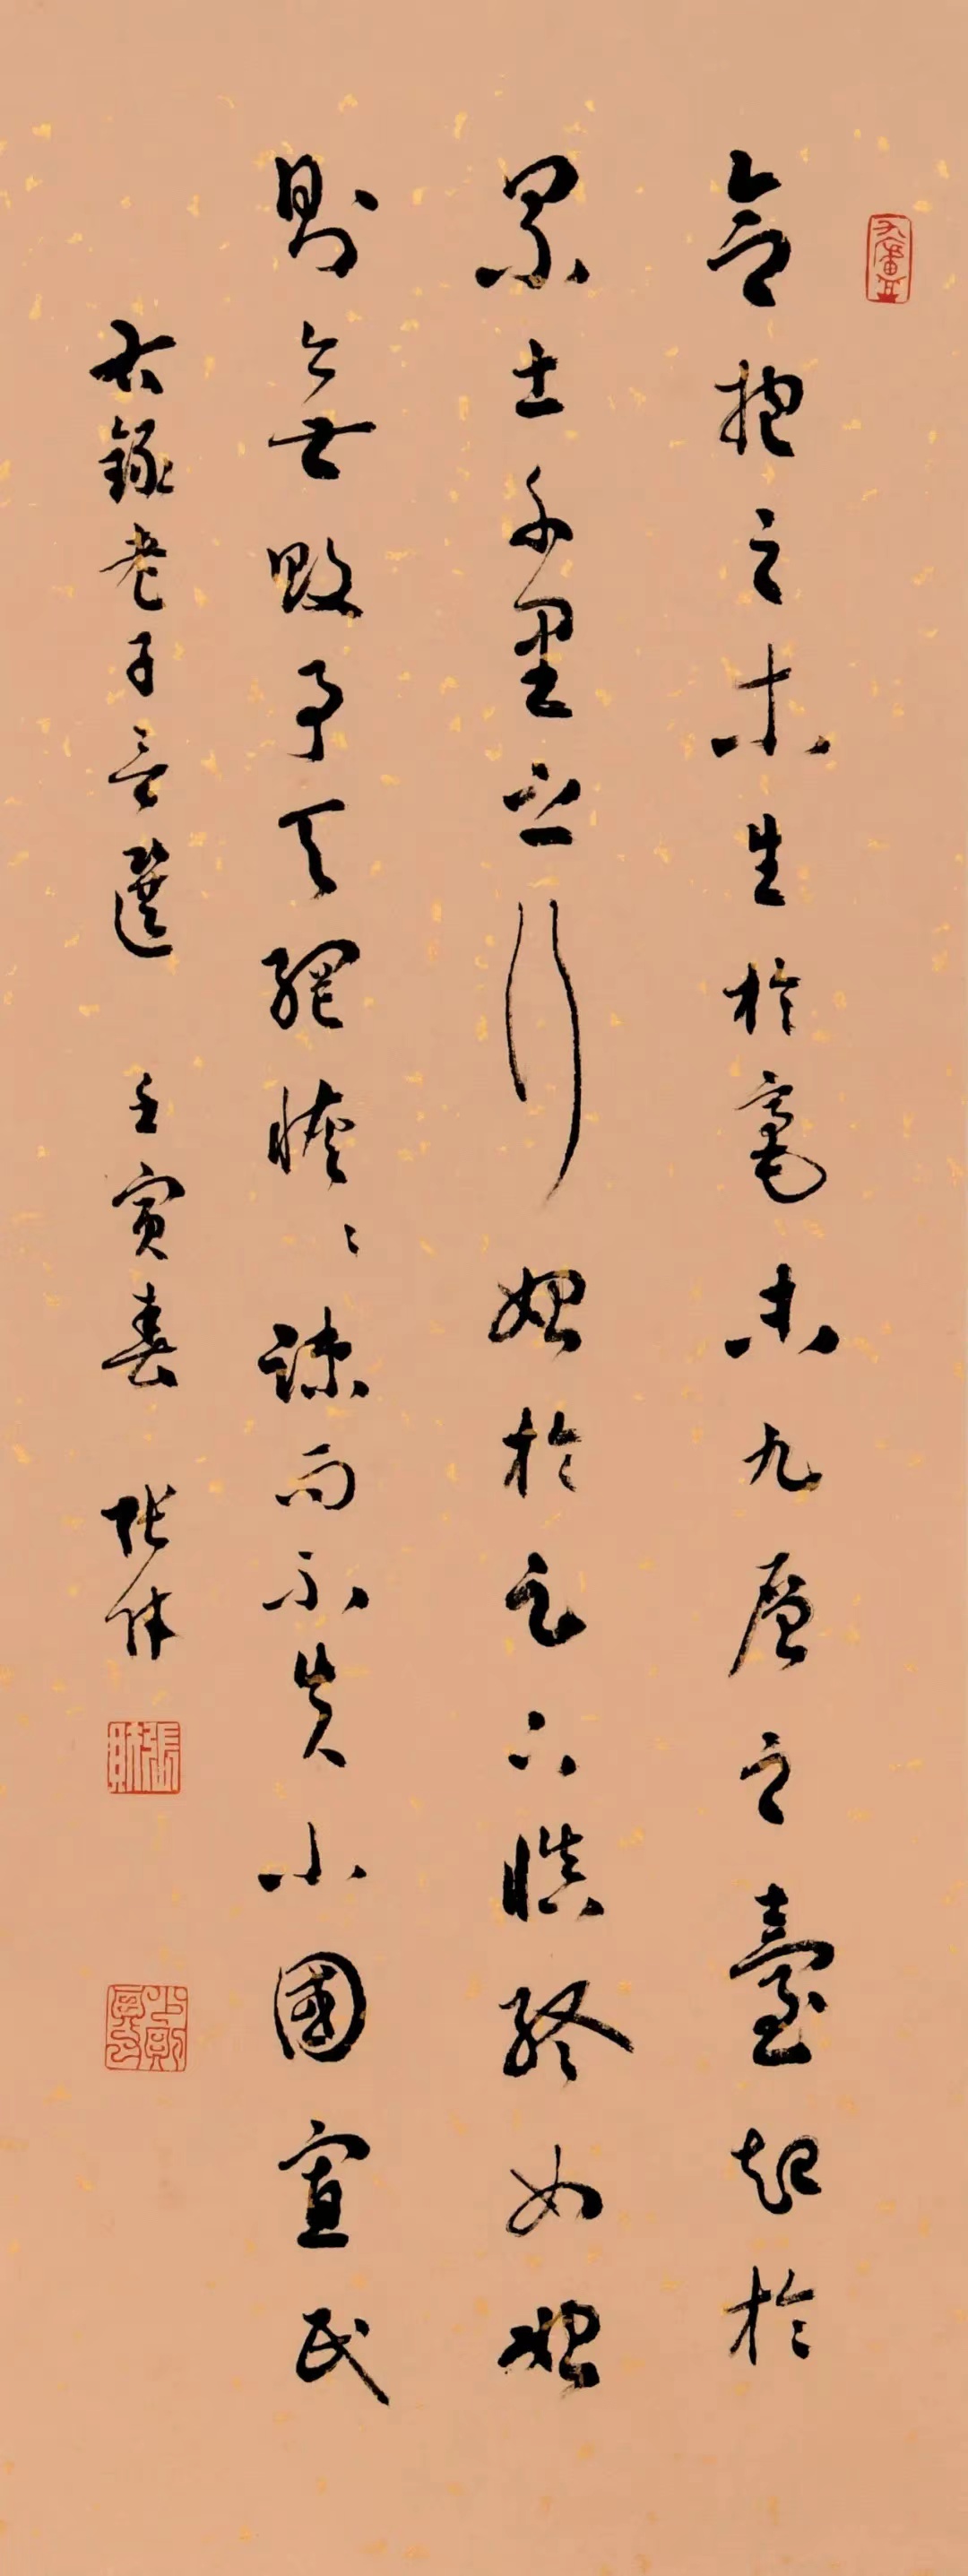 合抱之木生於毫末九層之臺起於
累土千里之行始於足下慎終如始
則無敗事天網恢〻疎而不失小國寡民
右錄老子言選 壬寅春 張